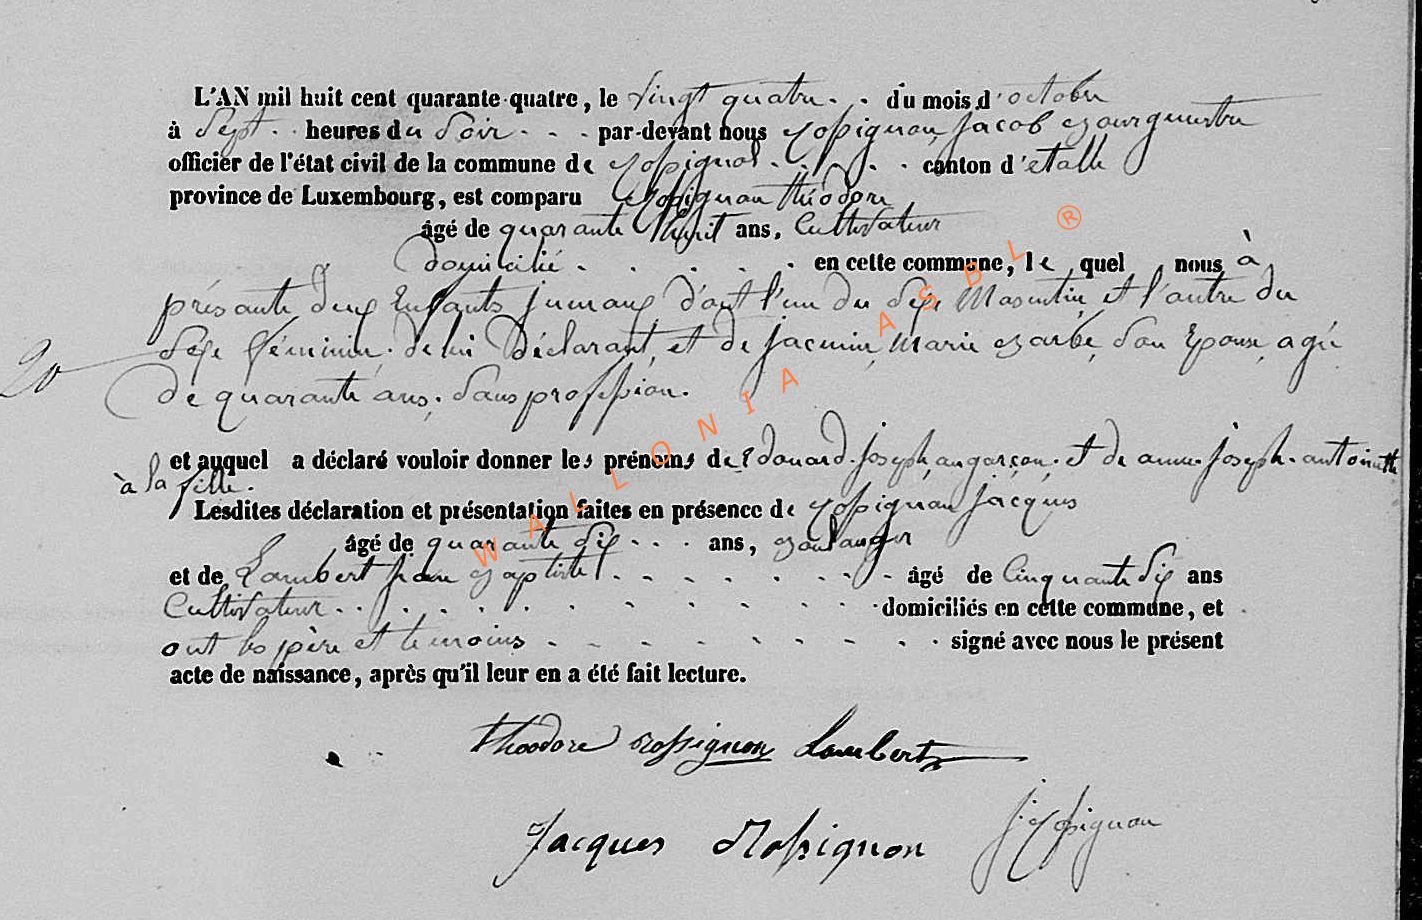 L'AN mil huit cent quarante-quatre, le vingt quatre . . du mois d'octobre
à sept . . heures du soir . . . par-devant nous Rossignon jacob Bourguestre
officier de l'état civil de la commune de Rossignol . . . . . canton d'etalle
province de Luxembourg, est comparu Rossignon théodore
âgé de quarante huit ans, Cultivateur
domicilié . . . . . en cette commune, le quel nous à
présanté deux Enfants jumaux d'ont l'un du sexe Masculin et l'autre du
20 sexe féminin. de lui Déclarant, et de jacmin, Marie Barbe, son Epouse, agée
de quarante ans, sans profession.
et auquel a déclaré vouloir donner les prénoms de Edouard joseph, au garçon, et de anne joseph antoinette
à la fille.
Lesdites déclaration et présentation faites en présence de Rossignon jacques
âgé de quarante six . . . ans, Boulanger
et de Lambert jean Baptiste . . . . . . . . âgé de Cinquante six ans
Cultivateur . . . . . . . . . . . domiciliés en cette commune, et
ont les père et temoins . . . . . . . . . signé avec nous le présent
acte de naissance, après qu'il leur en a été fait lecture.
théodore rossignon Lambert
Jacques Rossignon j. Rossignon
WALLONIA ASBL ®